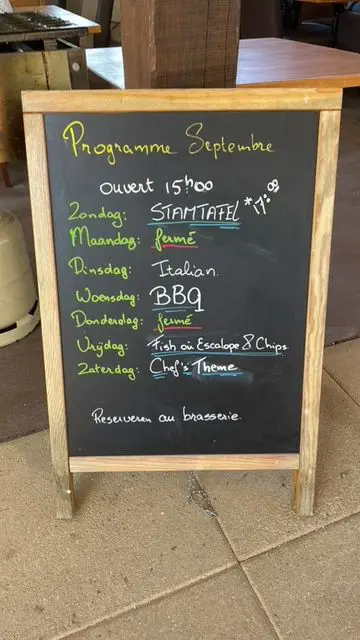 Programme Septembre
Ouvert 15h00
Zondag: STAMTAFEL *17:00
Maandag: fermé
Dinsdag: Italian.
Woensdag: BBQ
Donderdag: fermé
Vrijdag: Fish où Escalope & Chips
Zaterdag: Chef's Theme
Reserveren au brasserie.